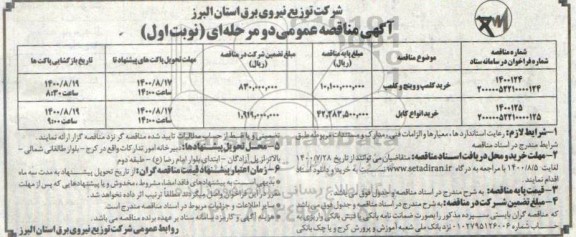 شرکت توزیع نیروی برق استان البرز
آگهی مناقصه عمومی دو مرحله ای (نوبت اول)
شماره مناقصه
شماره فراخوان در سامانه ستاد
موضوع مناقصه
مبلغ پایه مناقصه (ریال)
مبلغ تضمین شرکت در مناقصه (ریال)
مهلت تحویل پاکت های پیشنهاد تا
تاریخ بازگشایی پاکت ها
۱۴۰۰۱۲۴
۲۰۰۰۰۰۵۲۲۱۰۰۰۰۱۲۴
خرید کلمپ و وینچ و کلمپ
۱۰,۱۰۰,۰۰۰,۰۰۰
۸۳۰,۰۰۰,۰۰۰
۱۴۰۰/۸/۱۷
ساعت ۱۴:۰۰
۱۴۰۰/۸/۱۹
ساعت ۸:۳۰
۱۴۰۰۱۲۵
۲۰۰۰۰۰۵۲۲۱۰۰۰۰۱۲۵
خرید انواع کابل
۴۲,۲۸۳,۵۰۰,۰۰۰
۱,۹۱۹,۰۰۰,۰۰۰
۱۴۰۰/۸/۱۷
ساعت ۱۴:۰۰
۱۴۰۰/۸/۱۹
ساعت ۹:۰۰
۱–شرایط لازم: رعایت استاندارد ها، معیارها و الزامات فنی، مدارک و مستندات مربوطه طبق
شرایط مندرج در اسناد مناقصه
۲–مهلت خرید و محل دریافت اسناد مناقصه: متقاضیان می توانند از تاریخ ۱۴۰۰/۷/۲۸
لغایت ۱۴۰۰/۸/۵ با مراجعه به درگاه www.setadiran.ir نسبت به خرید و دانلود اسناد
اقدام نمایند.
۳–قیمت پایه مناقصه: به شرح مندرج در اسناد مناقصه و جدول فوق
۴–مبلغ تضمین شرکت در مناقصه: به شرح مندرج در اسناد مناقصه و جدول فوق می باشد
که مناقصه گران بایستی سپرده مذکور را بصورت ضمانت نامه بانکی یا فیش بانکی واریزی به
حساب شماره نزد بانک ملی شعبه آموزش و پرورش کرج و یا چک بانکی
تضمینی و یا فقط از حساب مطالبات تایید شده مناقصه گر نزد مناقصه گزار ارائه نمایند.
۵–محل تحویل پیشنهادها: دبیرخانه امور تدارکات واقع در کرج – بلوار طالقانی شمالی –
بالاتر از پل آزادگان – ابتدای بلوار امام رضا (ع) – طبقه دوم
۶–زمان اعتبار پیشنهاد قیمت مناقصه گران: از تاریخ تحویل پیشنهاد به مدت سه ماه
به پیشنهادهای فاقد امضاء، مشروط، مخدوش و یا پیشنهادهایی که پس از مهلت
ترتیب اثر داده نخواهد شد.
سایر اطلاعات و جزئیات مربوطه در اسناد مناقصه مندرج است
هزینه آگهی و کارمزد سامانه ستاد بر عهده برنده مناقصه می باشد.
روابط عمومی شرکت توزیع نیروی برق استان البرز